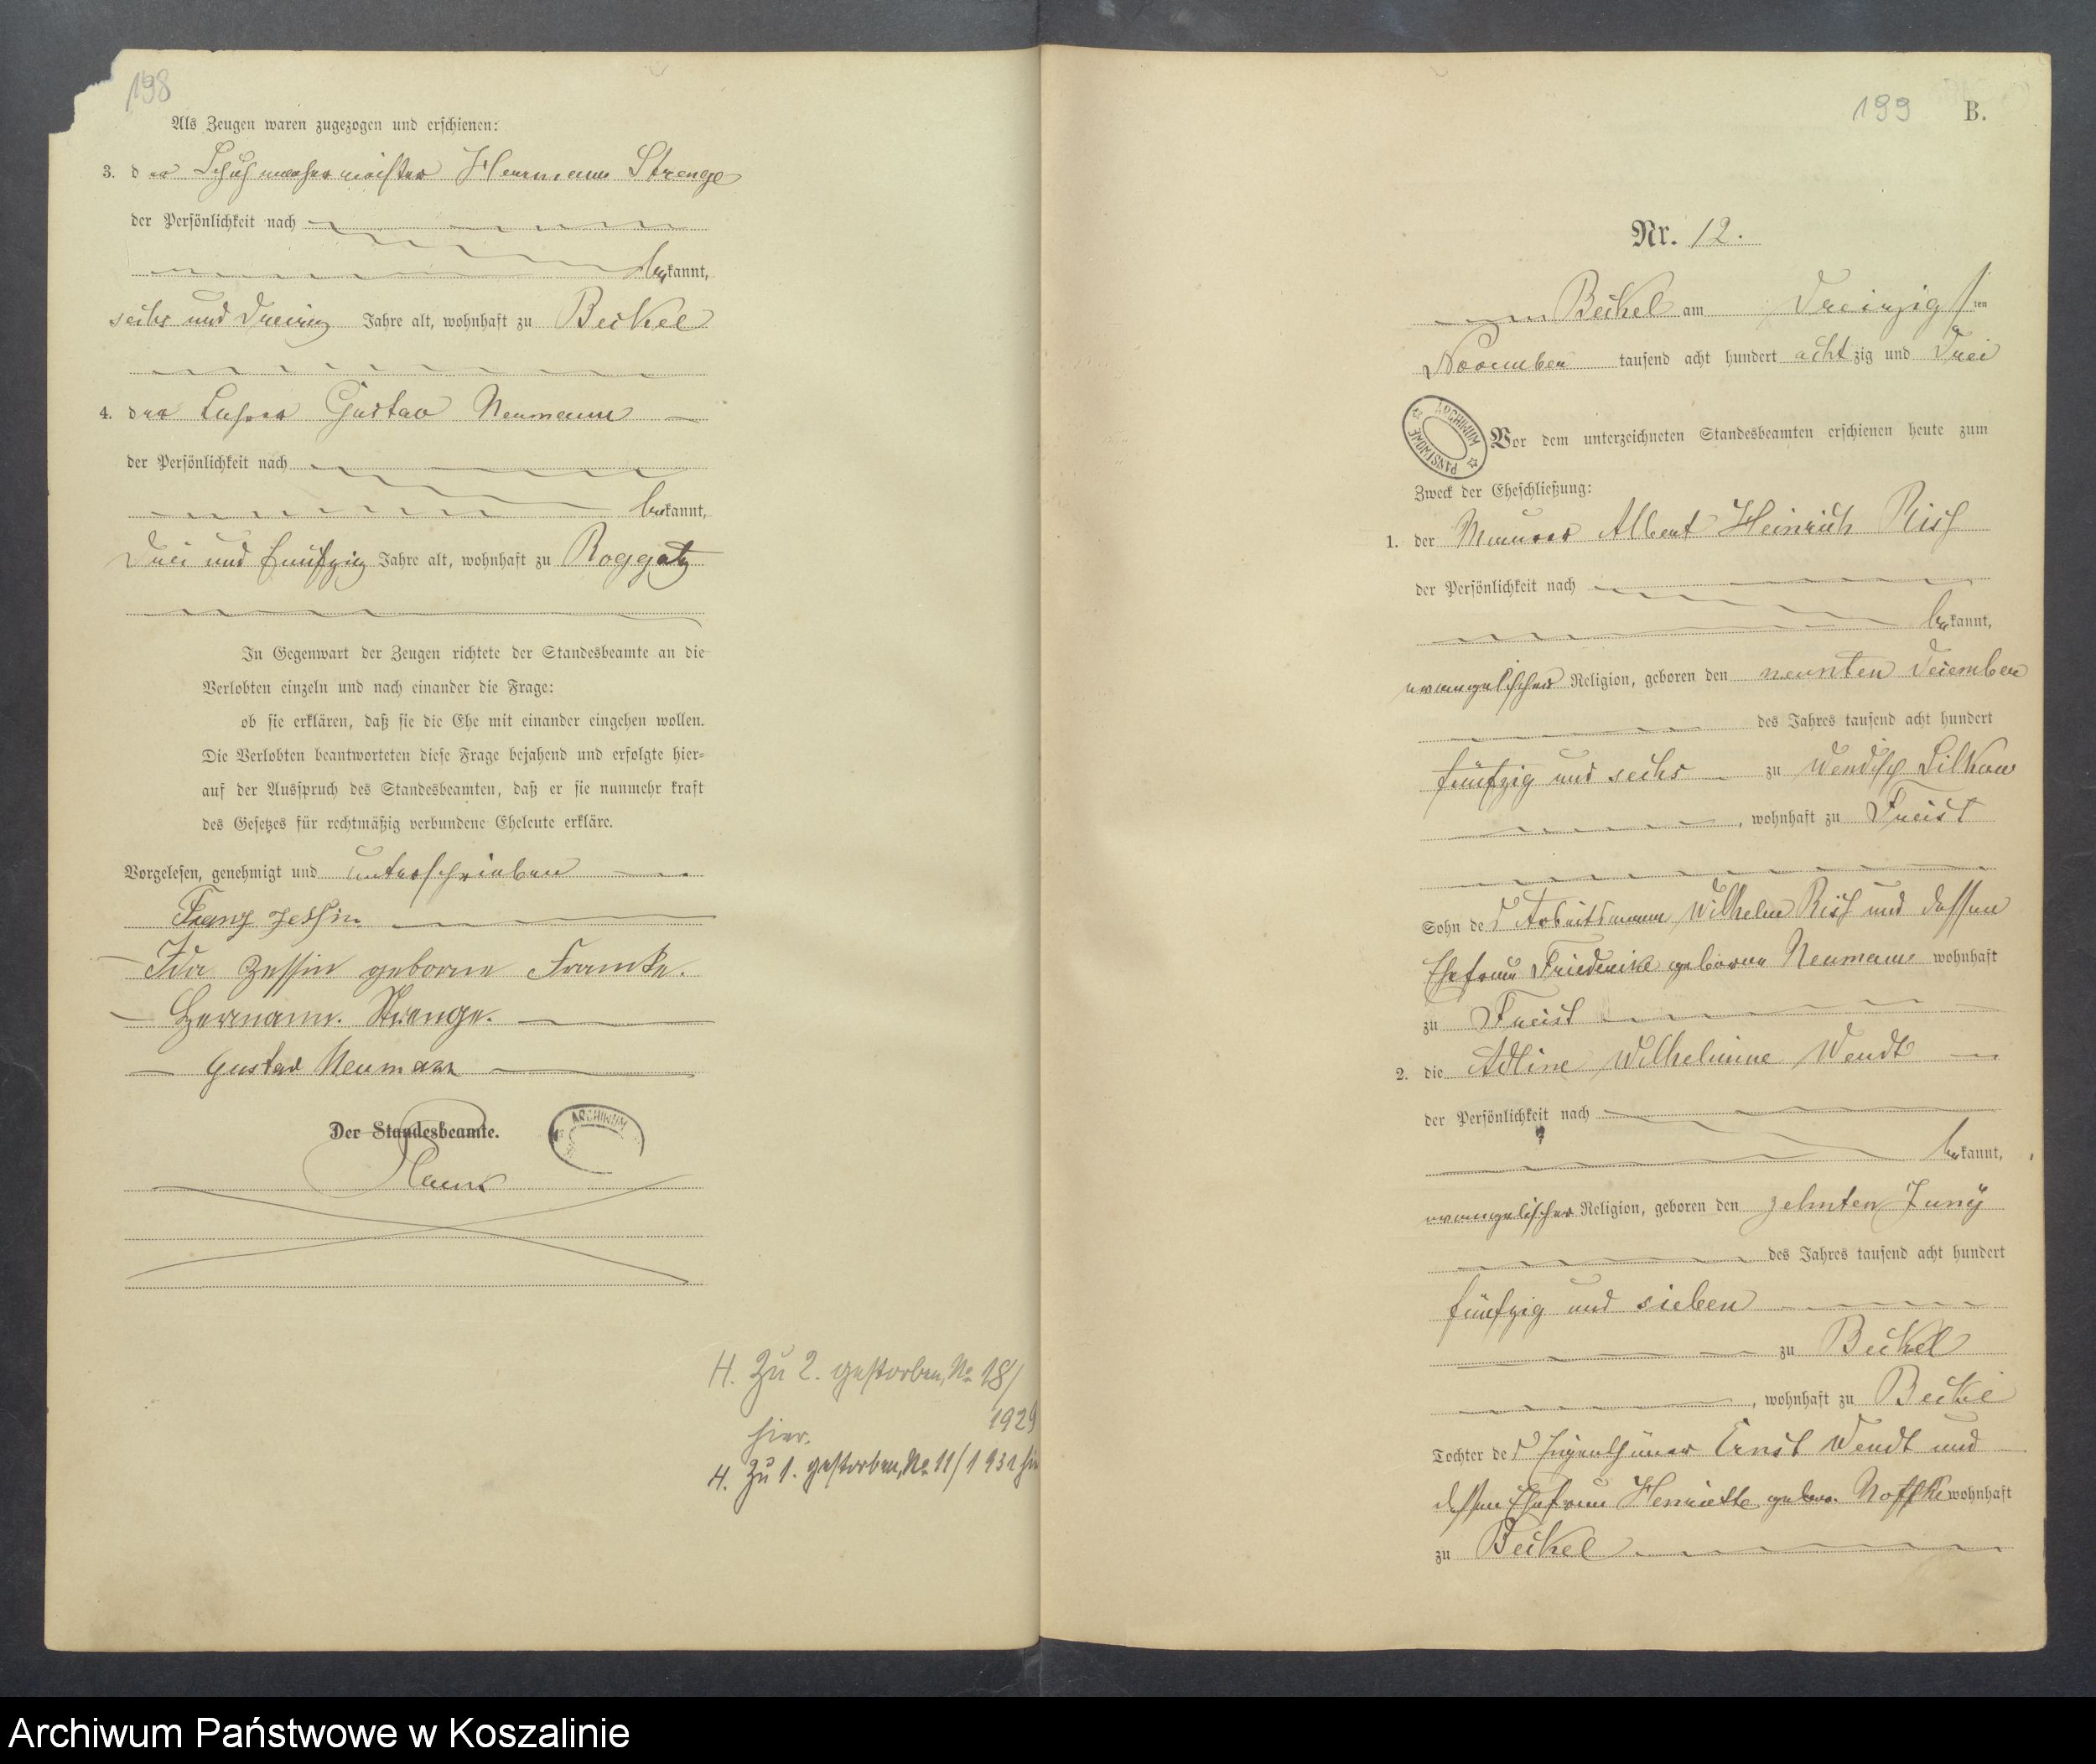 198
Als Zeugen waren zugezogen und erschienen:
3. der Schuhmachermeister Herrmann Strenge
der Persönlichkeit nach
bekannt,
sechs und dreizig Jahre alt, wohnhaft zu Beckel
4. der Lehrer Gustav Neumann
der Persönlichkeit nach
bekannt,
drei und fünfzig Jahre alt, wohnhaft zu Roggatz
In Gegenwart der Zeugen richtete der Standesbeamte an die
Verlobten einzeln und nach einander die Frage:
ob sie erklären, daß sie die Ehe mit einander eingehen wollen.
Die Verlobten beantworteten diese Frage bejahend und erfolgte hier-
auf der Ausspruch des Standesbeamten, daß er sie nunmehr kraft
des Gesetzes für rechtmäßig verbundene Eheleute erkläre.
Vorgelesen, genehmigt und unterschrieben
Franz Zessin
Ida Zessin geborne Framke.
Hermann. Strenge.
Gustav Neumann
Der Standesbeamte.
ARCHIWUM
H. Zu 2. gestorben, No 18/
1929
hier.
H. Zu 1. gestorben, No 11/1931
199 B.
Nr. 12.
Beckel am dreizigsten
November tausend acht hundert achtzig und drei
ARCHIWUM PAŃSTWOWE
Vor dem unterzeichneten Standesbeamten erschienen heute zum
Zweck der Eheschließung:
1. der Maurer Albert Heinrich Risch
der Persönlichkeit nach
bekannt,
evangelischer Religion, geboren den neunten Dezember
des Jahres tausend acht hundert
fünfzig und sechs zu Wendisch Silkow
, wohnhaft zu Freist
Sohn des Arbeitsmann Wilhelm Risch und dessen
Ehefrau Friederike geborne Neumann wohnhaft
zu Freist
2. die Adline Wilhelmine Wendt
der Persönlichkeit nach
bekannt,
evangelischer Religion, geboren den zehnten Juny
des Jahres tausend acht hundert
fünfzig und sieben
zu Beckel
, wohnhaft zu Beckel
Tochter des Eigenthümer Ernst Wendt und
dessen Ehefrau Henriette gebor. Noffke wohnhaft
zu Beckel
Archiwum Państwowe w Koszalinie